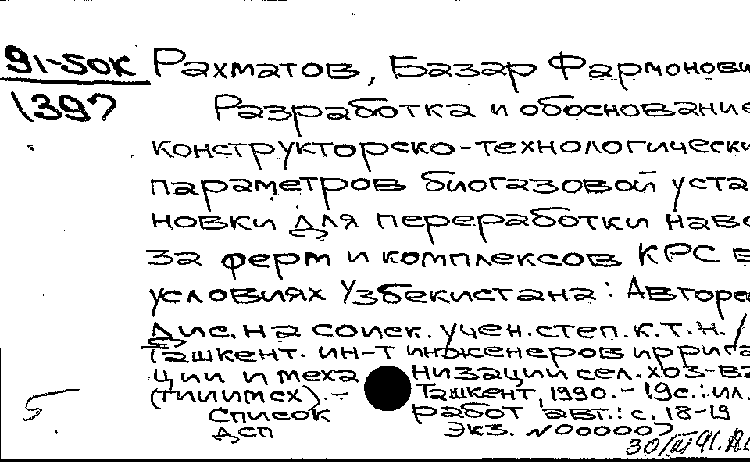 91-50к Рахматов, Базар Фармонови
1397 Разработка и обоснование
конструкторско-технологически
параметров биогазовой уста
новки для переработки наво
за ферм и комплексов КРС в
условиях Узбекистана: Авторе
Дис. на соиск. учен. степ. к.т.н. /
Ташкент. ин-т инженеров иррига
ции и меха низации сел. хоз-ва
(ТИИИМСХ).- Ташкент, 1990.- 19с.: ил.
5. Список работ авт.: с. 18-19
ДСП Экз. N000007
30/III 91.